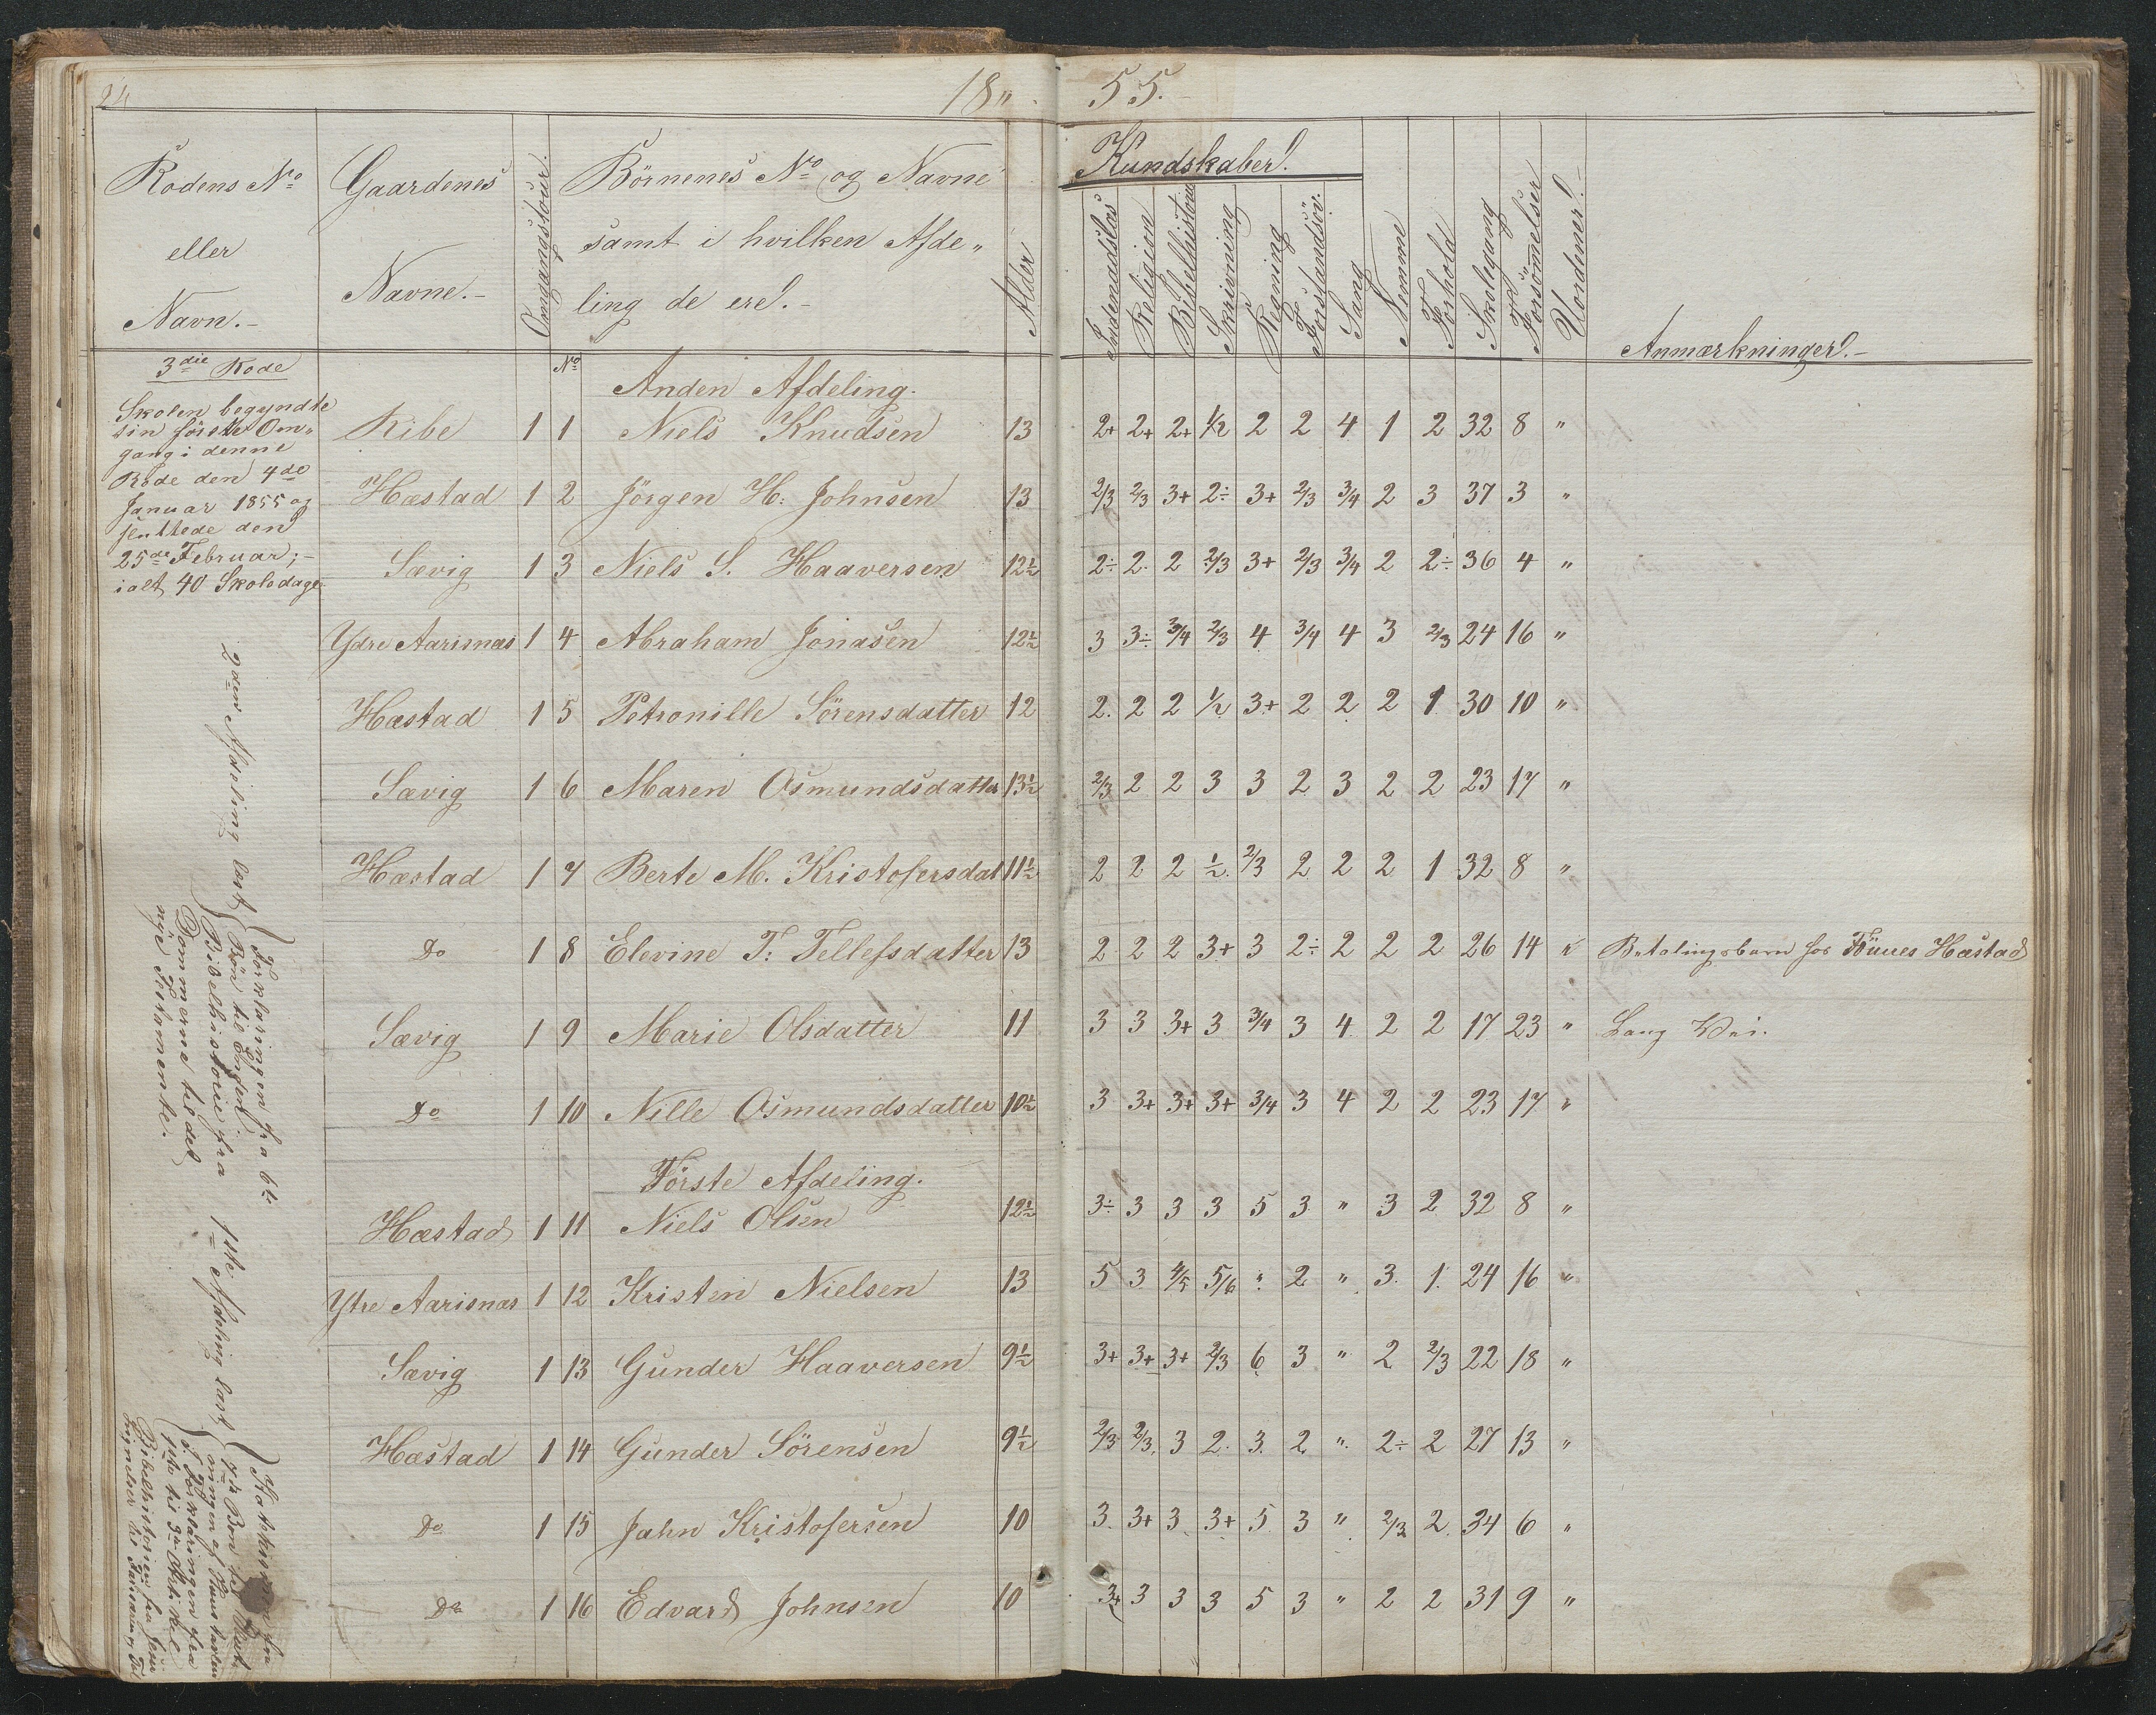 24
18" 55.
Rodens No eller Navn.-
Gaardenes Navne.-
Omgangstour.
Börnenes No og Navne samt i hvilken Afde„ling de ere.-
Alder
Kundskaber.
Indenadslæs
Religion
Bibelhistorie
Skrivning
Regning
Forstandsöv.
Sang
Nemme
Forhold
Skolegang
Forsömmelser
Uordener.-
Anmærkninger.-
3die Rode
Skolen begyndte
sin förste Om„
gang i denne
Rode den 4de
Januar 1855 og
sluttede den
25de Februar;-
ialt 40 Skoledage
2den Afdeling læst
Forklaringen fra 6te
Bön til Enden.
Bibelhistorie fra
Dommerne til det
nÿe Testamente.
1ste Afdeling læst
Forklaringen fra
1ste til 3die Artikel
Bibelhistorien fra Jesu
No Anden Afdeling.
Ribe 1 1 Niels Knudsen 13 2+ 2+ 2+ 1/2 2 2 4 1 2 32 8 "
Hæstad 1 2 Jörgen H: Johnsen 13 2/3 2/3 3+ 2÷ 3+ 2/3 3/4 2 3 37 3 "
Sævig 1 3 Niels S. Haaversen 12½ 2÷ 2 2 2/3 3+ 2/3 3/4 2 2÷ 36 4 "
Ydre Aarisnæs 1 4 Abraham Jonasen 12½ 3 3÷ 3/4 2/3 4 3/4 4 3 2/3 24 16 "
Hæstad 1 5 Petronille Sörensdatter 12 2 2 2 1/2 3+ 2 2 2 1 30 10 "
Sævig 1 6 Maren Osmundsdatter 13½ 2/3 2 2 3 3 2 3 2 2 23 17 "
Hæstad 1 7 Berte M. Kristofersdat 11½ 2 2 2 1/2 2/3 2 2 2 1 32 8 "
Do 1 8 Elevine T: Tellefsdatter 13 2 2 2 3+ 3 2÷ 2 2 2 26 14 " Betalingsbarn hos Hæstad
Sævig 1 9 Marie Olsdatter 11 3 3 3+ 3 3/4 3 4 2 2 17 23 " Lang Vei.
Do 1 10 Nille Osmundsdatter 10½ 3 3+ 3+ 3+ 3/4 3 4 2 2 23 17 "
Förste Afdeling.
Hæstad 1 11 Niels Olsen 12½ 3÷ 3 3 3 5 3 " 3 2 32 8 "
Ytre Aarisnæs 1 12 Kristen Nielsen 13 5 3 4/5 5/6 " 2 " 3 1 24 16 "
Sævig 1 13 Gunder Haaversen 9½ 3+ 3+ 3+ 2/3 6 3 " 2 2/3 22 18 "
Hæstad 1 14 Gunder Sörensen 9½ 2/3 2/3 3 2 3 2 " 2÷ 2 27 13 "
Do 1 15 Jahn Kristofersen 10 3 3+ 3 3+ 5 3 " 2/3 2 34 6 "
Do 1 16 Edvard Johnsen 10 3+ 3 3 3 5 3 " 2 2 31 9 "